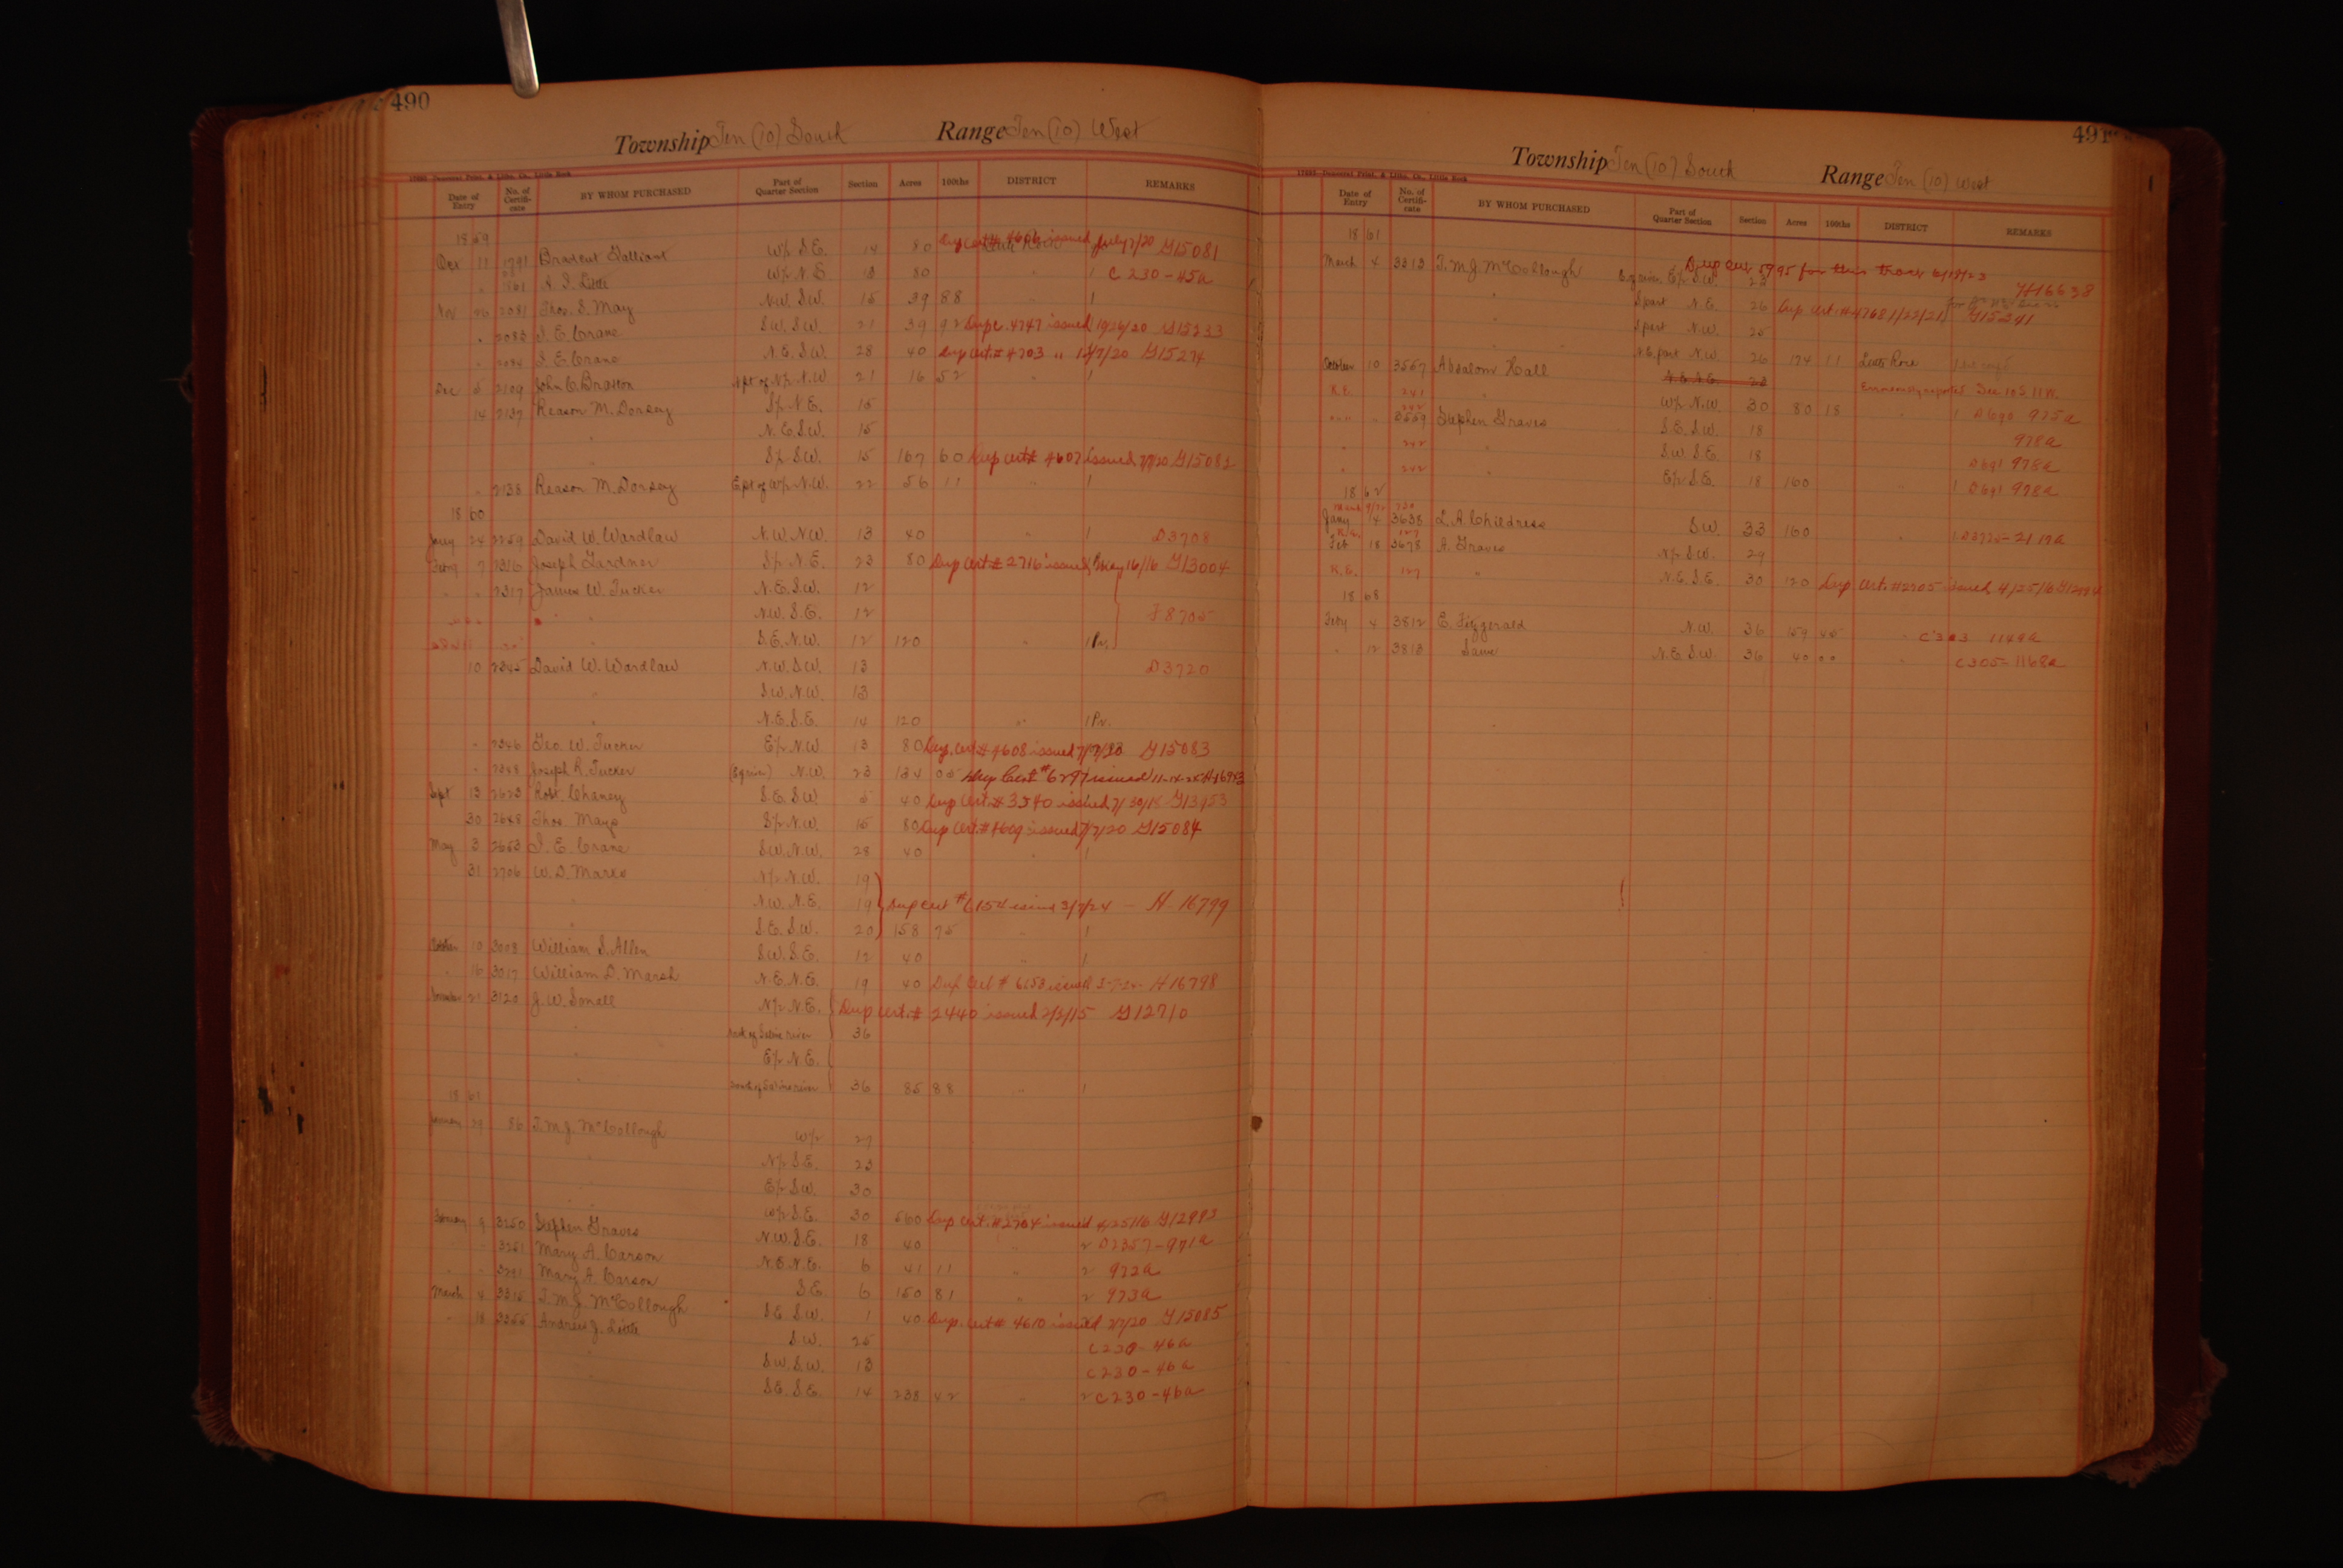 490
Township Ten (10) South Range Ten (10) West
Date of Entry No. of Certificate BY WHOM PURCHASED Part of Quarter Section Section Acres 100ths DISTRICT REMARKS
1859
Oct 11 1791 Galliant W½ S.E. 14 80 Dup cert # 4606 issued July 7/20 G15081
" A. J. Little W½ N.E. 13 80 " 1 C 230-45a
Nov 26 2081 Thos. S. May N.W. S.W. 15 39 88 " 1
" 2083 J. E. Crane S.W. S.W. 21 39 92 Dup c. 4747 issued 10/26/20 G15233
" 2084 J. E. Crane N.E. S.W. 28 40 Dup cert # 4703 " G15274
Dec 5 2109 John C. Braston pt of N½ N.W 21 16 52 " 1
14 2137 Reason M. Dorsey S½ N.E. 15
" N.E. S.W. 15
" S½ S.W. 15 167 60 Dup cert # 4607 issued 7/7/20 G15082
" 2138 Reason M. Dorsey E pt of W½ N.W. 22 56 11 " 1
1860
Jany 24 2259 David W. Wardlaw N.W. N.W. 13 40 " 1 D3708
Feby 7 2316 Joseph Gardner S½ N.E. 23 80 Dup cert # 2716 issued May 16/16 G13004
" " 2317 James W. Tucker N.E. S.W. 12
" N.W. S.E. 12 F8705
" S.E. N.W. 12 120 " 1 Pr.
10 2345 David W. Wardlaw N.W. S.W. 13 D3720
" S.W. N.W. 13
" N.E. S.E. 14 120 " 1 Pr.
" 2346 Geo. W. Tucker E½ N.W 13 80 Dup. cert # 4608 issued 7/7/20 G15083
" 2348 Joseph R. Tucker N.W. 23 134 05 Dup Cert # 6297 issued 11-14-25
Sept 13 2623 Robt. Chaney S.E. S.W 5 40 Dup cert. # 3540 issued 7/30/18 G13953
30 2648 Thos. Mays S½ N.W. 15 80 Dup cert. # 4609 issued 7/7/20 G15084
May 3 2653 J. E. Crane S.W. N.W. 28 40 " 1
31 2706 W. D. Marks N½ N.W. 19
" N.W. N.E. 19 Dup cert # 6154 issued 3/7/24 - H 16799
" S.E. S.W. 20 158 75 " 1
October 10 3008 William S. Allen S.W. S.E. 12 40 " 1
" 16 3017 William D. Marsh N.E. N.E. 19 40 Dup Cert # 6153 issued H 16798
21 3120 J. W. Sorrell N½ N.E. Dup cert. # 2440 issued 2/3/15 G12710
" River 36
" E½ N.E.
" South of Saline river 36 85 88 " 1
1861
January 86 T. M. J. McCollough W½ 27
" N½ S.E. 23
" E½ S.W. 30
" W½ S.E. 30 560 Dup cert. # 2704 issued 4/25/16 G12993
February 9 3250 Stephen Graves N.W. S.E. 18 40 " 2 D2357-971a
" " 3251 Mary A. Carson N.E. N.E. 6 41 11 " 2 972a
" " 3291 Mary A. Carson S.E. 6 150 81 " 2 973a
March 4 T. M. J. McCollough S.E. S.W. 1 40 Dup. cert # 4610 issued 7/7/20 G15085
" 18 Andrew J. Little S.W. 25 C230-46a
" S.W. S.W. 13 C230-46a
S.E. S.E. 14 238 42 " 2 C230-46a
491
Township Ten (10) South Range Ten (10) West
Date of Entry No. of Certificate BY WHOM PURCHASED Part of Quarter Section Section Acres 100ths DISTRICT REMARKS
1861
Dup cer 5995 for this tract 6/19/23
March 4 3313 T. M. J. McCollough E½ S.W. 23 H16638
" S part N.E. 26 Dup cert. # 4768 1/22/21 G15341
" S part N.W. 25
" N.E. part N.W. 26 174 11 Little Rock
October 10 3557 Absalom Hall N.E. N.E. 23 Erroneously reported See 10 S. 11 W.
R.E. 241 " W½ N.W. 30 80 18 " 1 975a
242 3559 Stephen Graves S.E. S.W. 18 978a
" 242 " S.W. S.E. 18 978a
" 242 " E½ S.E. 18 160 " 1 978a
1862
Jany 14 3638 L. A. Childress S.W. 33 160 " 1
Feb 18 3678 A. Graves N½ S.W. 29
R.E. 127 " N.E. S.E. 30 120 Dup. cert. # 2705 issued 4/25/16
1868
Feby 4 3812 E. Fitzgerald N.W. 36 159 45 " C303 1149a
" 12 3813 Same N.E. S.W. 36 40 00 " C305-1168a